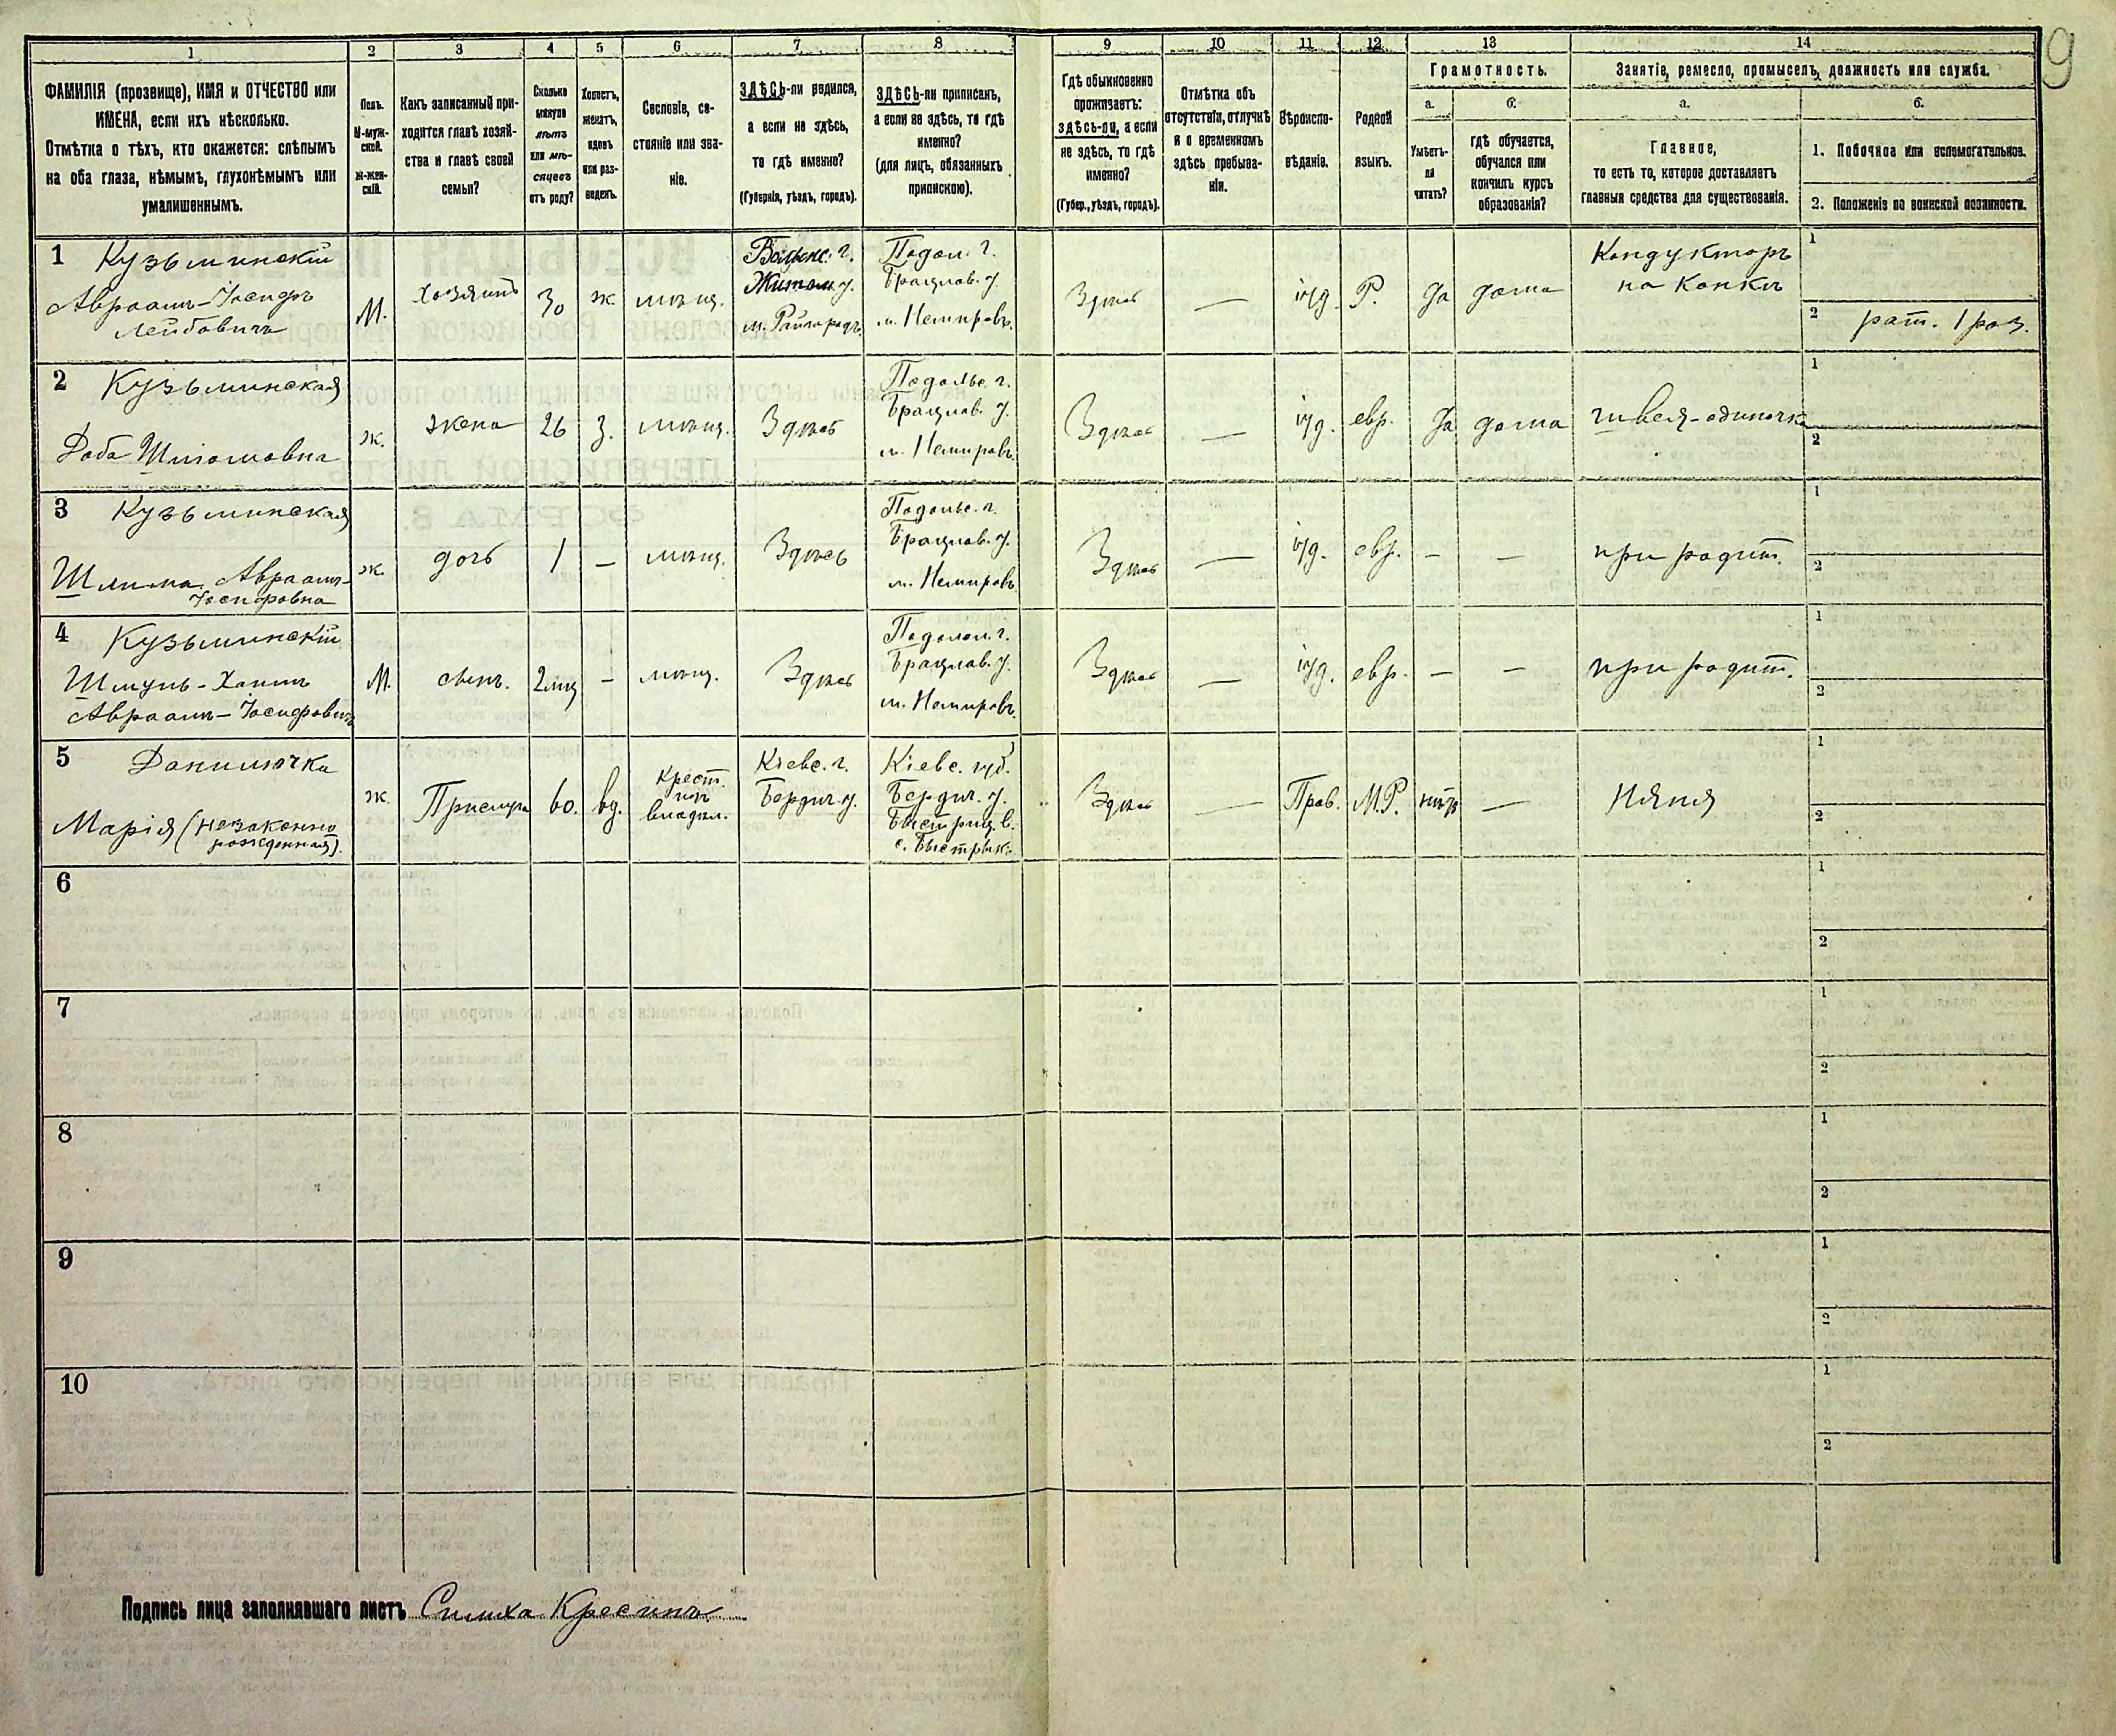 9
1 2 3 4 5 6 7 8 9 10 11 12 13 14
ФАМИЛІЯ (прозвище), ИМЯ и ОТЧЕСТВО или
ИМЕНА, если ихъ нѣсколько.
Отмѣтка о тѣхъ, кто окажется: слѣпымъ
на оба глаза, нѣмымъ, глухонѣмымъ или
умалишеннымъ.
Полъ.
М-муж-
ской.
Ж-жен-
скій.
Какъ записанный при-
ходится главѣ хозяй-
ства и главѣ своей
семьи?
Сколько
минуло
лѣтъ
или мѣ-
сяцевъ
отъ роду?
Холостъ,
женатъ,
вдовъ
или раз-
веденъ.
Сословіе, со-
стояніе или зва-
ніе.
ЗДѢСЬ-ли родился,
а если не здѣсь,
то гдѣ именно?
(Губернія, уѣздъ, городъ).
ЗДѢСЬ-ли приписанъ,
а если не здѣсь, то гдѣ
именно?
(для лицъ, обязанныхъ
припискою).
Гдѣ обыкновенно
проживаетъ:
здѣсь-ли, а если
не здѣсь, то гдѣ
именно?
(Губер., уѣздъ, городъ).
Отмѣтка объ
отсутствіи, отлучкѣ
и о временномъ
здѣсь пребыва-
ніи.
Вѣроиспо-
вѣданіе.
Родной
языкъ.
Грамотность.
а.
Умѣетъ-
ли
читать?
б.
гдѣ обучается,
обучался или
кончилъ курсъ
образованія?
Занятіе, ремесло, промыселъ, должность или служба.
а.
Главное,
то есть то, которое доставляетъ
главныя средства для существованія.
б.
1. Побочное или вспомогательное.
2. Положеніе по воинской повинности.
1 Кузьминскій
Авраамъ-Іосифъ
Лейбовичъ
М.
хозяинъ
30
ж
мѣщ.
Волынс. г.
Житом. у.
м. Райгородъ
Подол. г.
Брацлав. у.
м. Немировъ.
Здѣсь
—
іуд.
Р.
да
дома
Кондукторъ
на Конкѣ
1
2 рат. 1 раз.
2 Кузьминская
Доба Шліомовна
ж.
жена
26
з.
мѣщ.
Здѣсь
Подольс. г.
Брацлав. у.
м. Немировъ.
Здѣсь
—
іуд.
евр.
да
дома
швея-одиночка
1
2
3 Кузьминская
Шлима Авраам-
Іосифовна
ж.
дочь
1
—
мѣщ.
Здѣсь
Подольс. г.
Брацлав. у.
м. Немировъ
Здѣсь
—
іуд.
евр.
—
—
при родит.
1
2
4 Кузьминскій
Шмуль-Хаимъ
Авраамъ-Іосифовичъ
М.
сынъ.
2 мѣц
—
мѣщ.
Здѣсь
Подольс. г.
Брацлав. у.
м. Немировъ.
Здѣсь
—
іуд.
евр.
—
—
при родит.
1
2
5 Данилючка
Марія (незаконно
рожденная).
ж.
Прислуга
60.
вд.
Крест.
изъ
владѣл.
Кіевс. г.
Бердич. у.
Кіевс. губ.
Бердич. у.
Быстриц. в.
с. Быстрикъ
Здѣсь
—
Прав.
М.Р.
нѣтъ
—
Няня
1
2
6
1
2
7
1
2
8
1
2
9
1
2
10
1
2
Подпись лица заполнявшаго листъ Симха Кресинъ